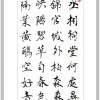 丞相祠堂何處
錦官城外柏森
映階碧草自春
葉黃鸝空好